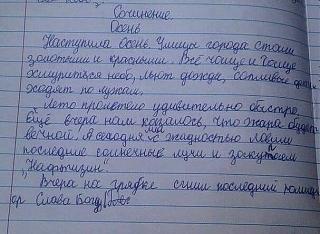 Сочинение.
Осень
Наступила Осень. Улицы города стали
золотыми и красными. Всё чаще и чаще
хмуриться небо, льют дожди, сопливые дети
ходят по лужам.
Лето пролетело удивительно быстро,
Ещё вчера нам казалось, что жара будет
вечной. А сегодня мы с жадностью ловим
последние солнечные лучи и закупаем
"Нафтизин".
Вчера на грядке сгнил последний помид
ор Слава Богу